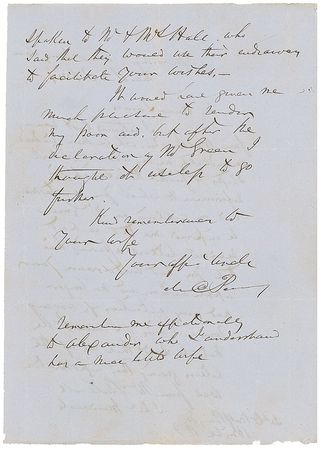 spoken to Mr & Mrs Hall who
said that they would use their endeavors
to facilitate your wishes,—
It would have given me
much pleasure to render
my poor aid, but after the
declaration of Mr Green I
thought it useless to go
further.
Kind remembrances to
Your wife
Your affte Uncle
M C Perry
Remember me affectionately
to Alexander who I understand
has a nice little wife